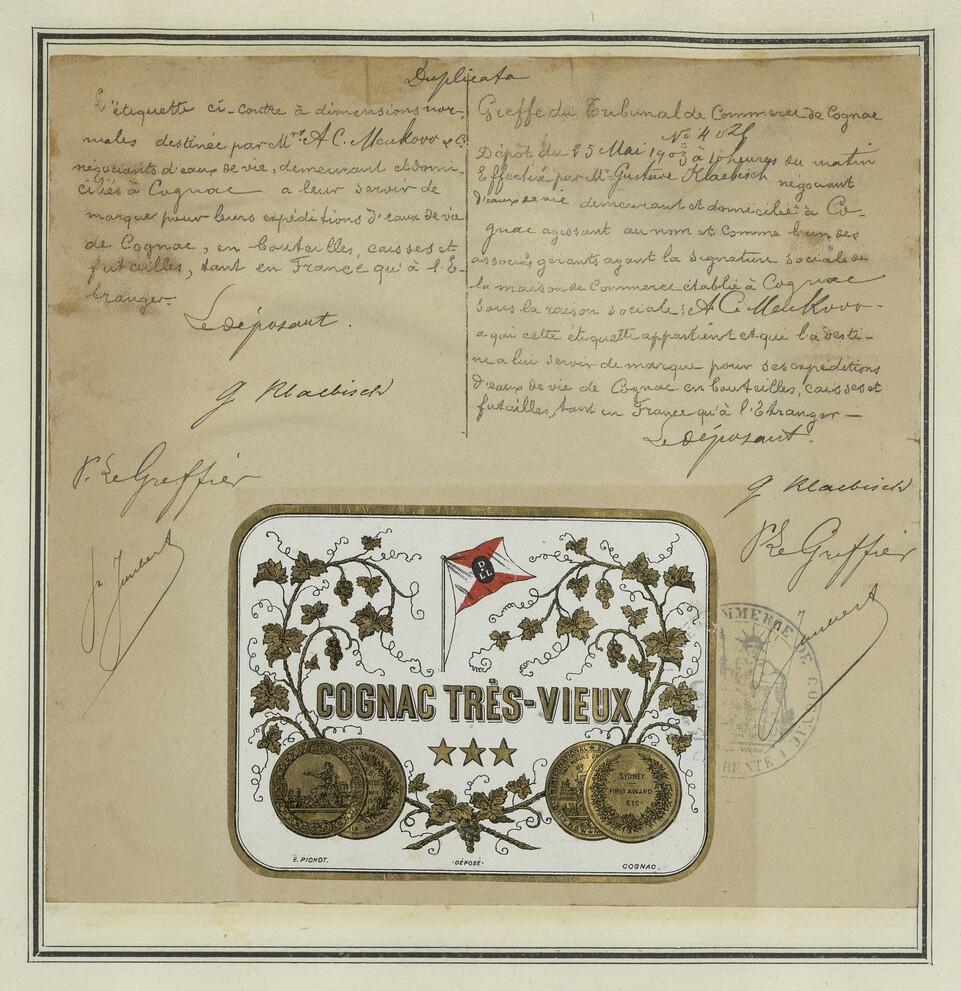 Duplicata
L'étiquette ci-contre à dimensions nor-
males destinée par Mrs A C. Meukow & C.
négociants d'eaux de vie, demeurant et domi-
ciliés à Cognac a leur servir de
marque pour leurs expéditions d'eaux de vie
de Cognac, en bouteilles, caisses et
futailles, tant en France qu'à l'E-
tranger.
Le déposant.
G Klaebisch
P. Le Greffier
Greffe du Tribunal de Commerce de Cognac
No 402
Dépôt du 25 Mai 1903 à 10 heures du matin
Effectué par Mr Gustave Klaebisch négociant
d'eaux de vie demeurant et domicilié à Co-
gnac agissant au nom et comme l'un des
associés gérants ayant la signature sociale de
la maison de Commerce établie à Cognac
sous la raison sociale: A C Meukow -
a qui cette étiquette appartient et qui l'a desti-
née a lui servir de marque pour ses expéditions
d'eaux de vie de Cognac en bouteilles, caisses et
futailles, tant en France qu'à l'Etranger —
Le déposant.
G Klaebisch
P. Le Greffier
COMMERCE DE COGNAC
D
LL
COGNAC TRÈS-VIEUX
SYDNEY
FIRST AWARD
ETC
E. PICHOT.
-DÉPOSÉ-
COGNAC.